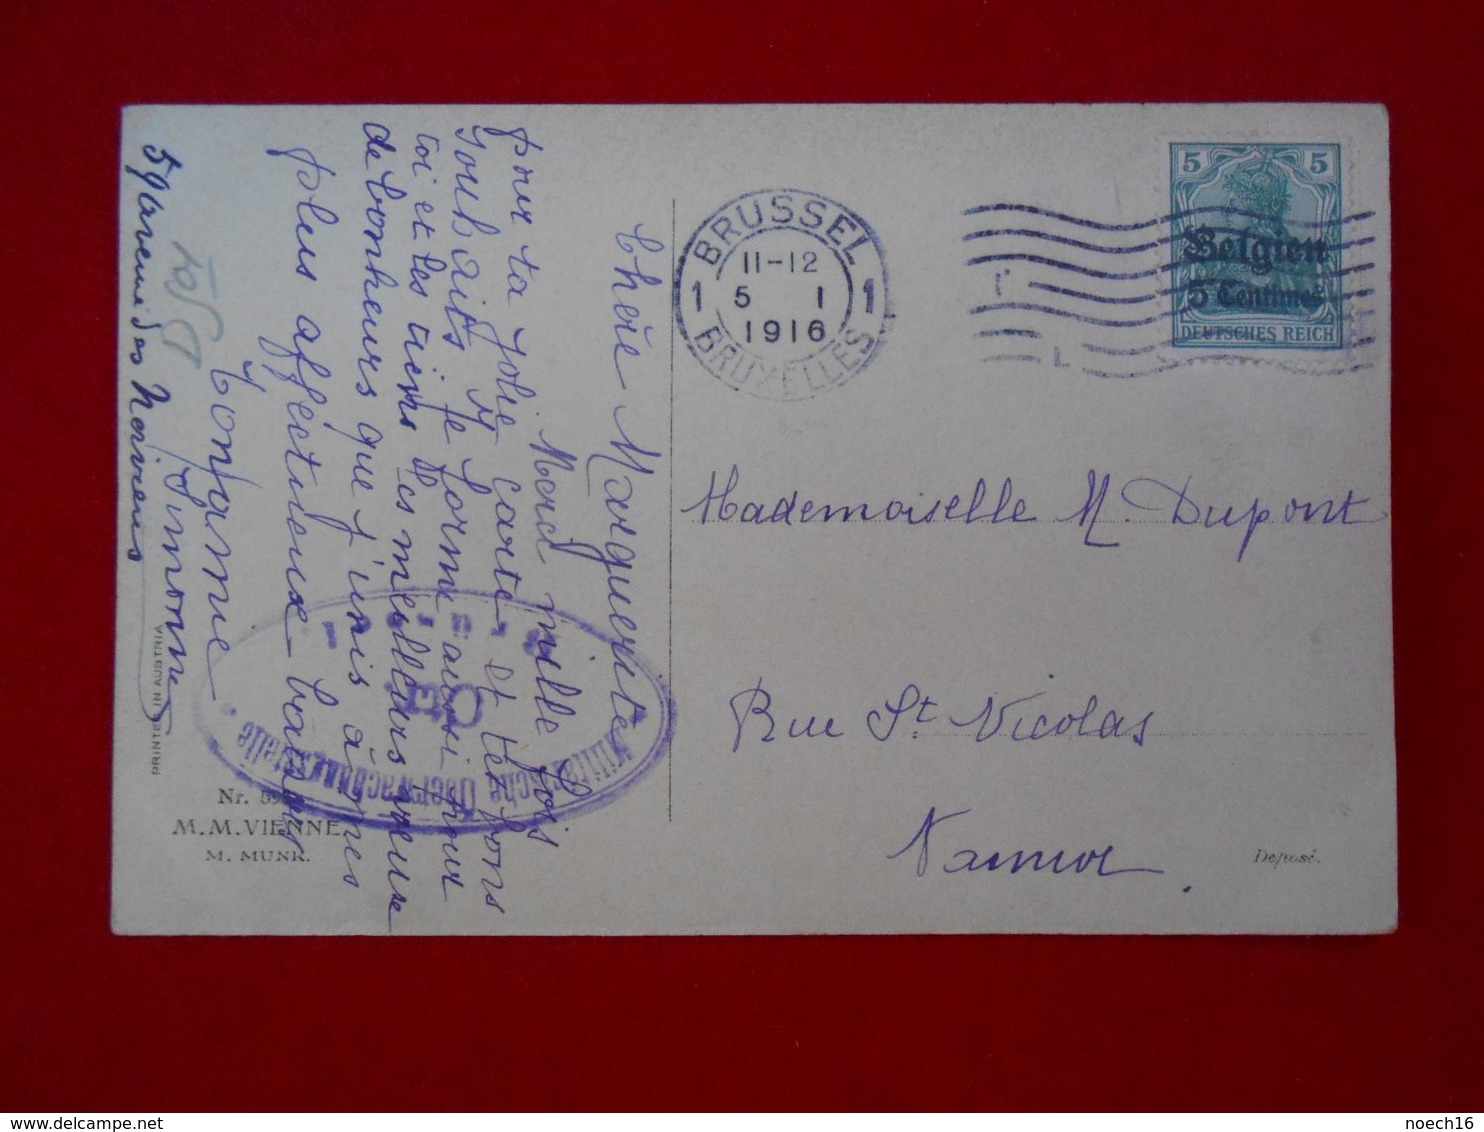 Chère Marguerite
Merci mille fois
pour ta jolie carte et les bons
souhaits. Je forme aussi pour
toi et les tiens les meilleurs vœux
de bonheurs que j'unis à mes
plus affectieux baisers
Ton amie
Simonne
59 avenue des Nerviens
BRUSSEL
11-12
1 5 1 1
1916
BRUXELLES
5 5
Belgien
5 Centimes
DEUTSCHES REICH
Mademoiselle M. Dupont
Rue St Nicolas
Namur
Militärische Überwachungsstelle
PRINTED IN AUSTRIA
Nr.
M. M. VIENNE
M. MUNK.
Deposé.
noech16